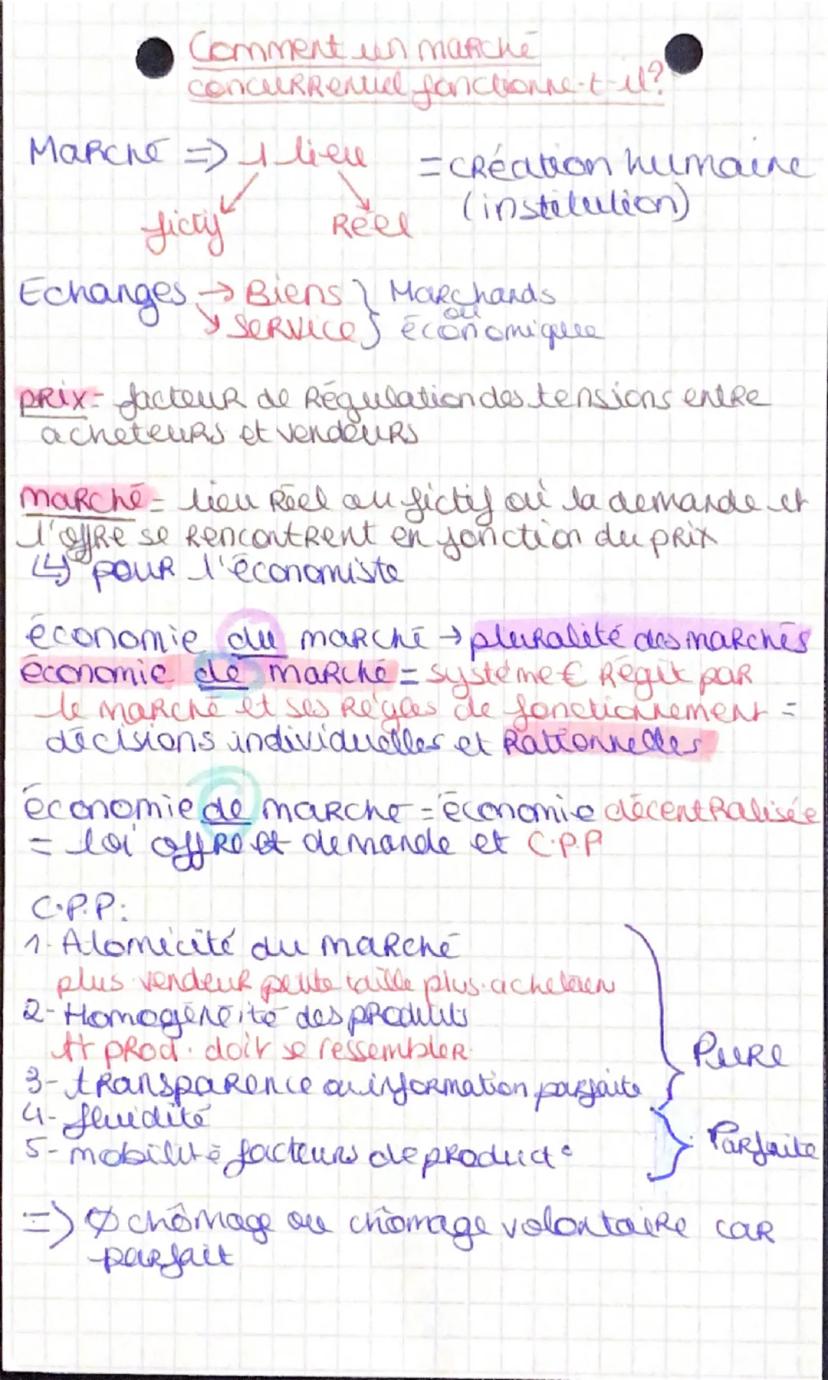 Comment un marché
concurrentiel fonctionne-t-il?
Marché => 1 lieu = création humaine
fictif Réel (institution)
Echanges → Biens } Marchands
↘ service } ou économique
prix = facteur de Régulation des tensions entre
acheteurs et vendeurs
marché = lieu Réel ou fictif où la demande et
l'offre se rencontrent en fonction du prix
↳ pour l'économiste
économie du marché → pluralité des marchés
économie de marché = système € Régit par
le marché et ses Règles de fonctionnement =
décisions individuelles et Rationnelles
économie de marché = économie décentralisée
= loi offre et demande et C.P.P
C.P.P:
1- Atomicité du marché
plus vendeur petite taille plus. acheteur
2- Homogénéité des produits
tt prod. doit se ressembler
3- transparence ou information parfaite
Pure
4- fluidité
5- mobilité facteurs de product°
Parfaite
=> Ø chômage ou chômage volontaire car
parfait